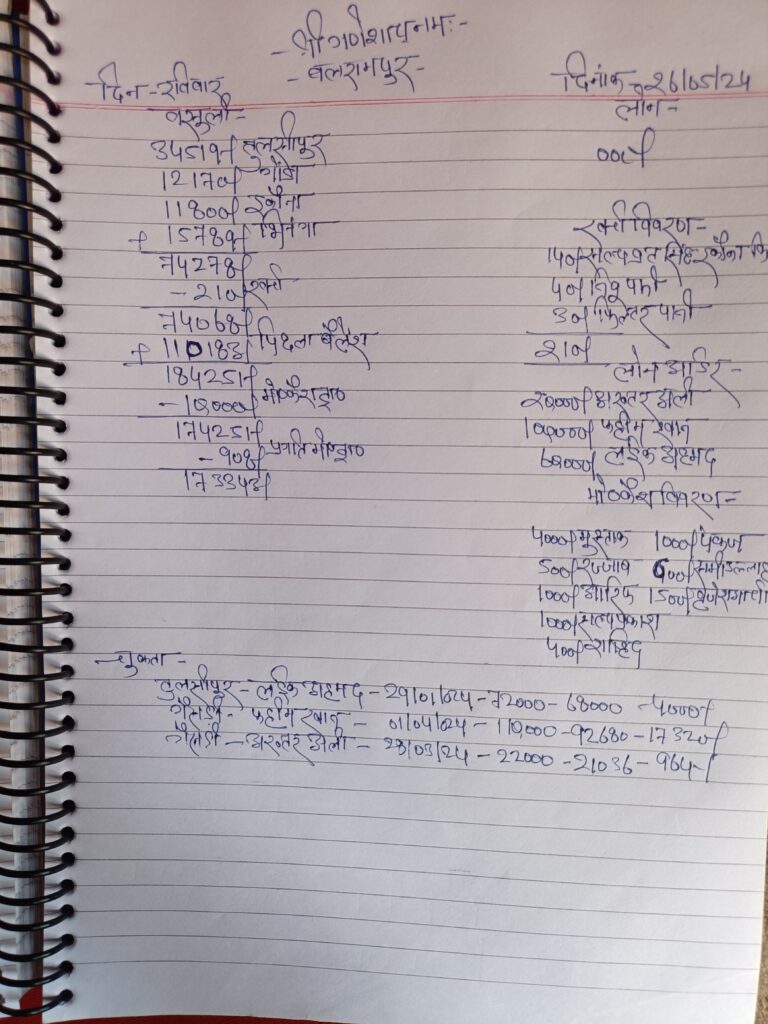 - श्री गणेशाय नमः -
- बलरामपुर -
दिन - रविवार
दिनांक - 26/05/24
वसूली -
34519/ तुलसीपुर
12170/ गोंडा
11800/ इकौना
+ 15789/ भिनगा
74278/
- 210/ खर्चा
74068/
+ 110183/ पिछला बैलेंस
184251/
- 10000/
174251/
- 908/
173343/
लोन -
00/
खर्चा विवरण -
140/ सत्यव्रत सिंह इकौना
40/
30/ फिल्टर पानी
210/
लोन आर्डर -
20000/ अख्तर अली
100000/ फहीम खान
60000/ लईक अहमद
विवरण -
4000/ मुस्ताक 1000/ पंकज
500/ रज्जाब 600/ समीउल्लाह
1000/ आरिफ 1500/
1000/ सत्यप्रकाश
400/ राशिद
- चुकता -
तुलसीपुर - लईक अहमद - 29/01/024 - 72000 - 68000 - 4000/
गैसडी - फहीम खान - 01/04/024 - 110000 - 92680 - 17320/
गैसडी - अख्तर अली - 23/03/24 - 22000 - 21036 - 964/